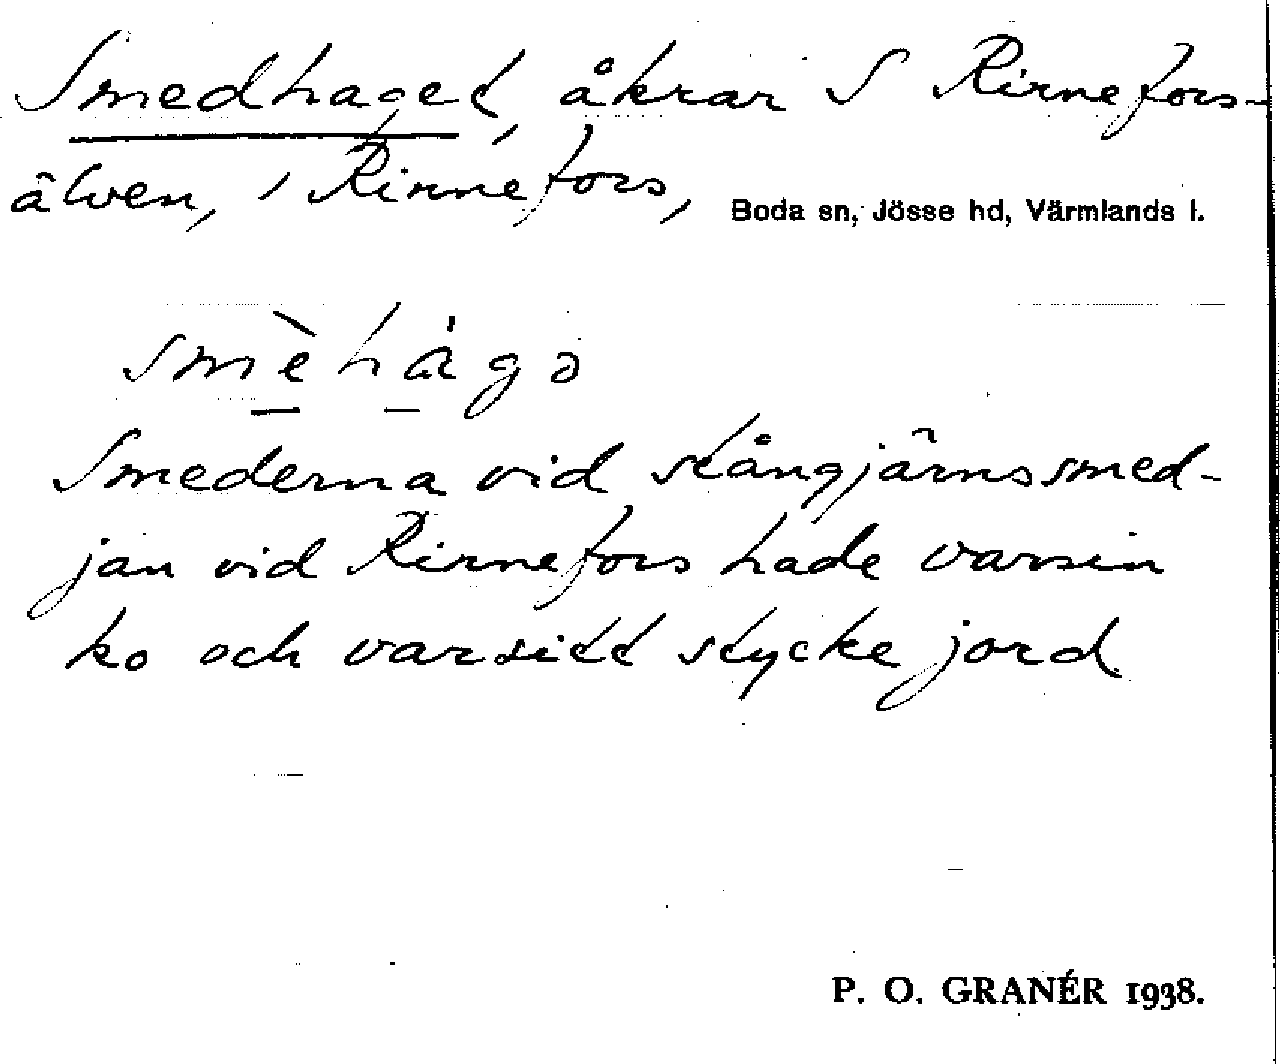 Smedhaget, åkrar S Rinnefors-
älven, i Rinnefors, Boda sn, Jösse hd, Värmlands l.
smèhágə
Smederna vid stångjärnssmed-
jan vid Rinnefors hade varsin
ko och varsitt stycke jord
P. O. GRANÉR 1938.